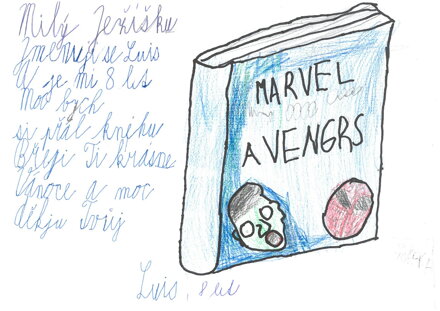 Milý Ježíšku
Jmenuji se Luis
A je mi 8 let
Moc bych
si přál knihu
Přeji Ti krásné
Vánoce a moc
děkju Tvůj
Luis, 8 let
MARVEL
AVENGRS